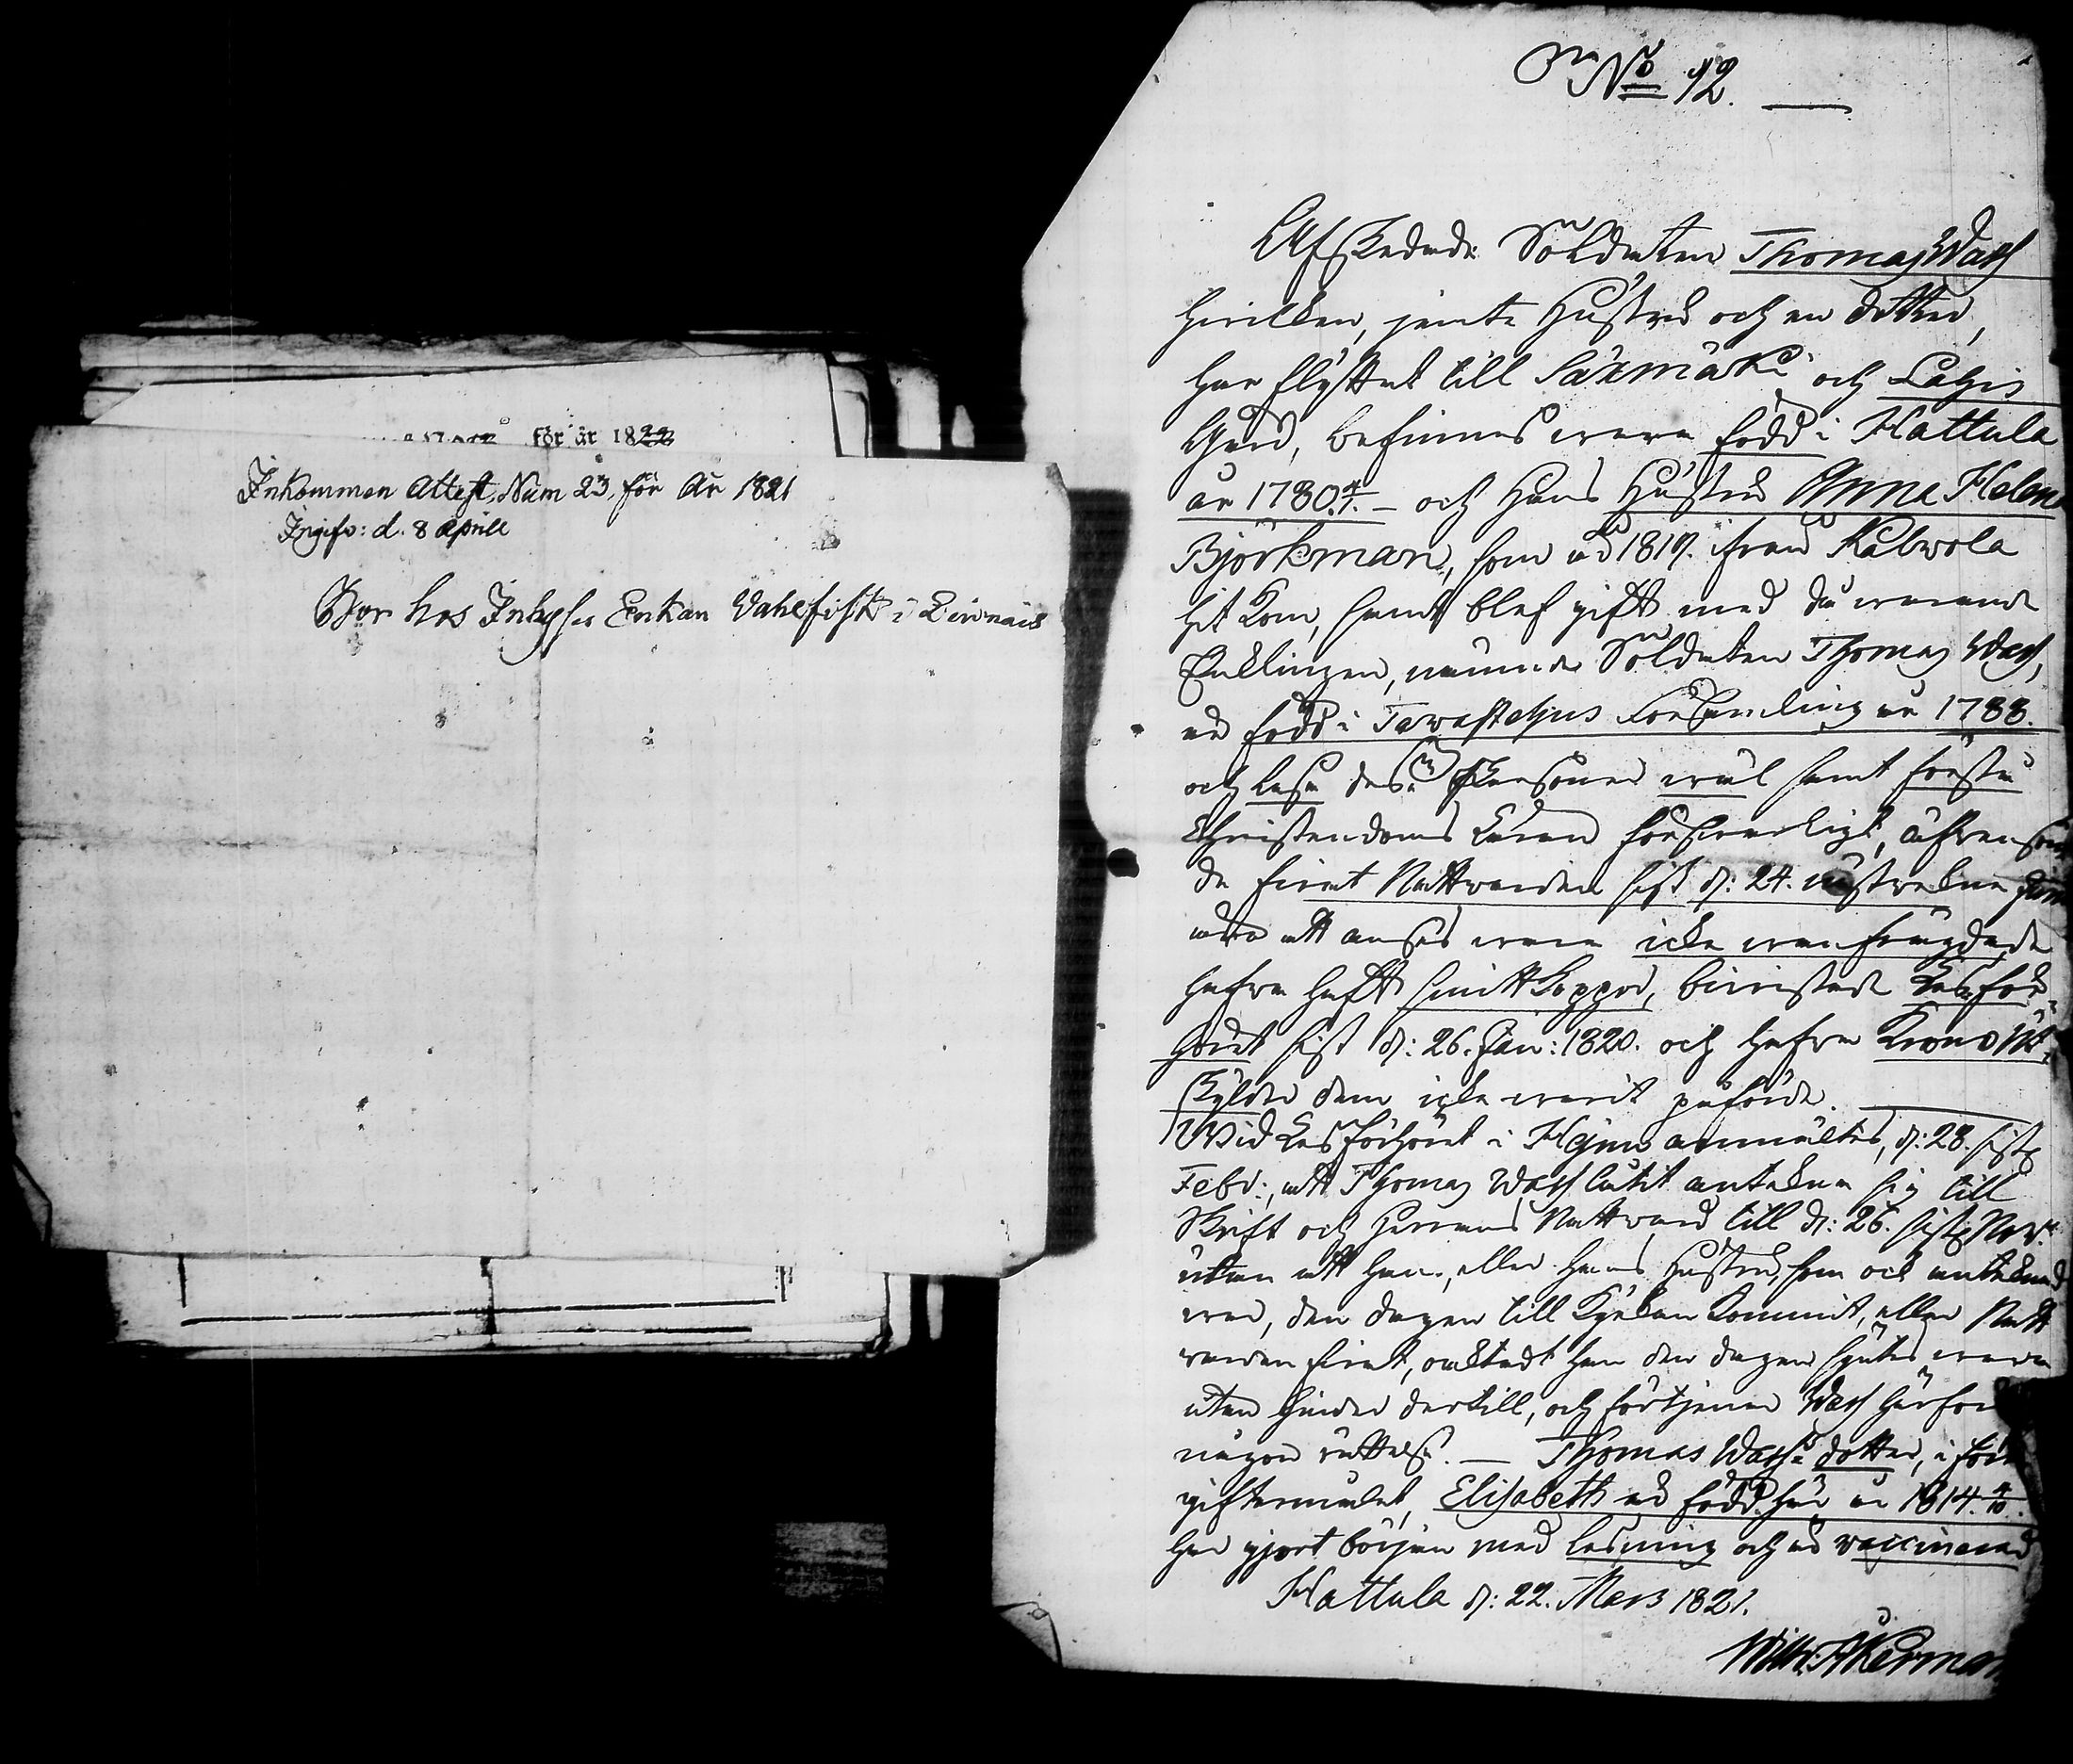 för år 1822
Inkommen Attest, Num 23, för År 1821
Ingifv: d. 8 Aprill
Bor hos Inhyses Enkan Vahlfisk i
No 12.
Afskedade Soldaten Thomas Wass
hvilken, jemte Hustru och en dotter,
har flyttat till Säxmäki och Lahis
Gård, befinnes vara född i Hattula
år 1780. – och Hans Hustru Anna Helena
Björkman, som åd 1819. ifrån Kalvola
hit kom, samt blef gift med då varande
Enklingen, nämnde Soldaten Thomas Wass,
är född i Tawastehus Församling år 1788.
och läsa desse Personer väl samt förstå
Christendoms Läran försvarligt, äfven som
de firat Nattvarden sist d: 24. nästvekne
äro att anses vara icke vanfrägdade
hafva haft smittkoppor, bivistade Läsför-
höret sist d: 26. Jan: 1820. och hafva Krono Ut-
skylder dem icke varit påförde.
Wid Läsförhöret i anmältes, d: 28. sistl.
Febr:, att Thomas Wass låtit antekna sig till
Skrift och Herrans Nattvard till d: 26. sistl. Nov:
utan att han, eller Hans Hustru, som ock anteknad
var, den dagen till Kyrkan kommit, eller Natt
varden firat, oaktadt han den dagen syntes vara
utan hinder dertill, och förtjenar Wass härför
någon rättelse. — Thomas Wass's dotter, i förra
giftermålet, Elisabeth är född här år 1814. 4/10.
har gjort början med läsning och är vaccinerad
Hattula d: 22. Mars 1821.
Wilh: Åkerman